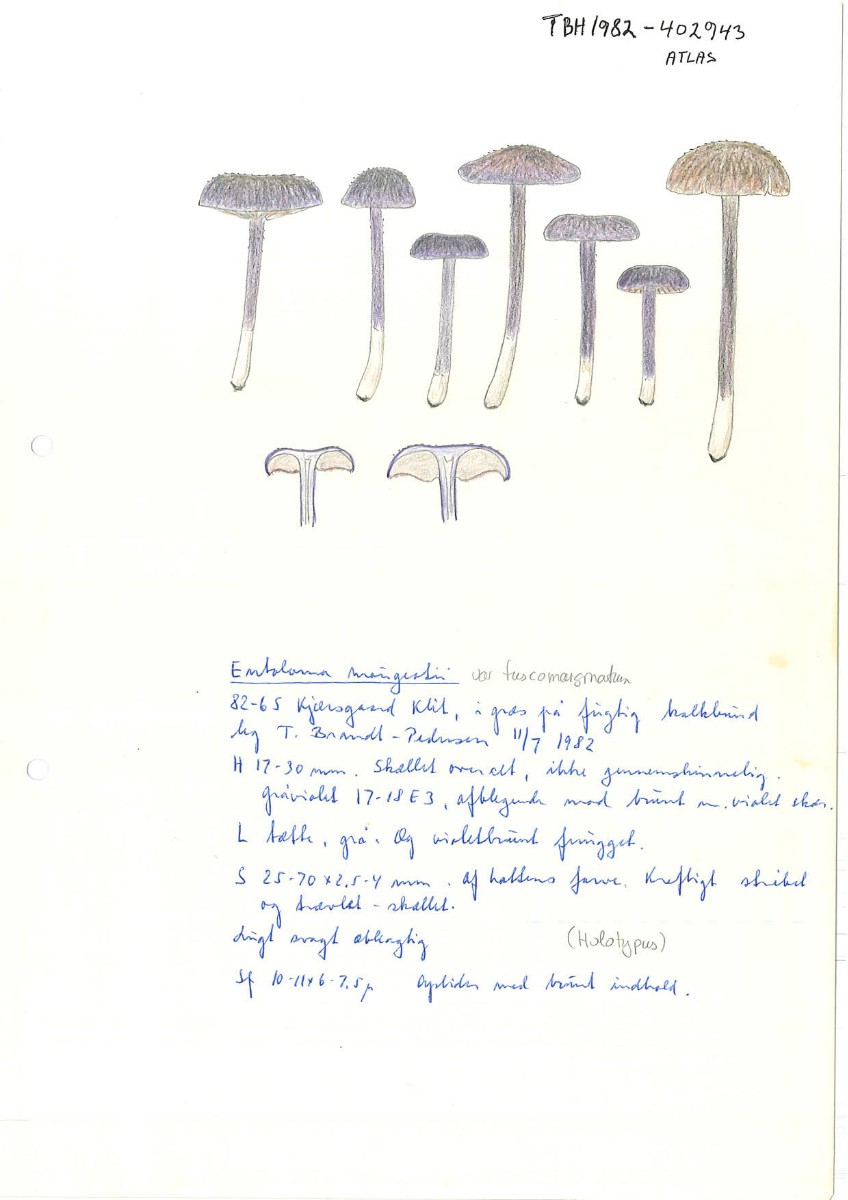 TBH1982-402943
ATLAS
Entoloma mougeotii var fuscomarginatum
82-65 Kjærsgaard Klit, i græs på fugtig kalkbund
leg T. Brandt-Pedersen 11/7 1982
H 17-30 mm. Skællet overalt, ikke gennemskinnelig.
gråviolet 17-18E3, afblegende mod brunt m. violet skær.
L tætte, grå. Æg violetbrunt frugget.
S 25-70x2,5-4 mm. af hattens farve. Kraftigt stribet
og trævlet-skællet.
Lugt svagt
(Holotypus)
Sp 10-11x6-7,5µ Cystider med brunt indhold.